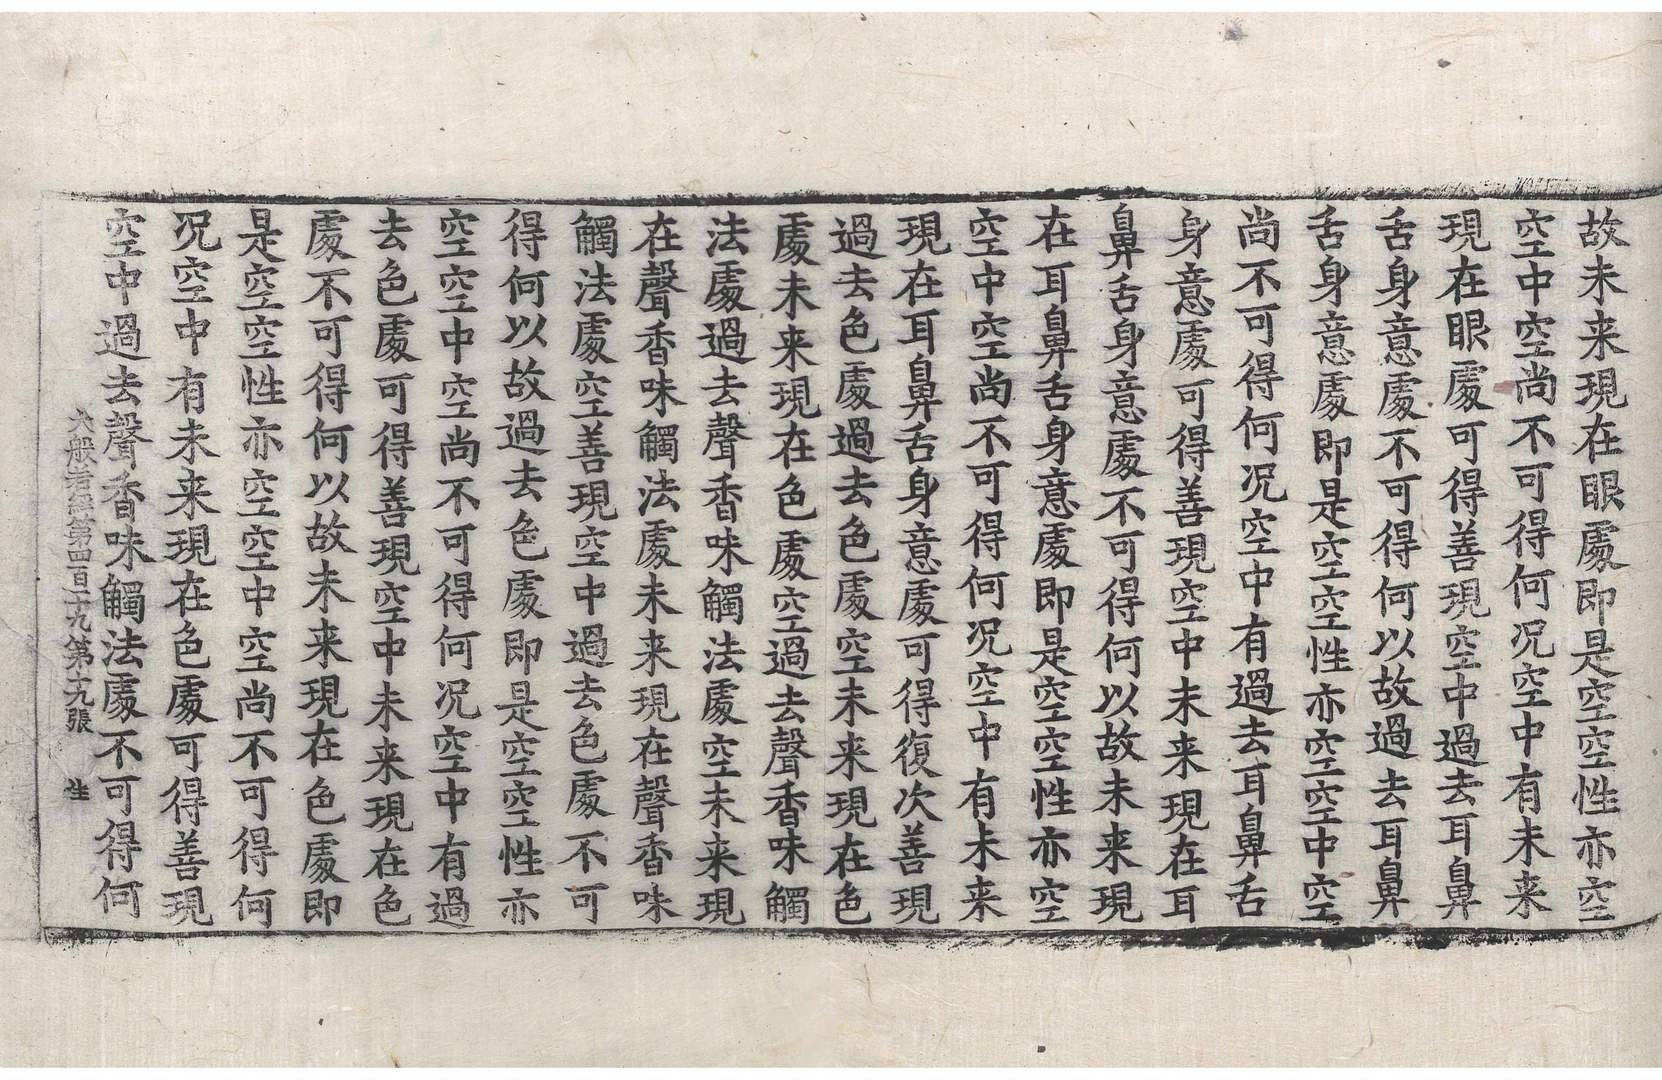 故未来現在眼處即是空空性亦空
空中空尚不可得何况空中有未来
現在眼處可得善現空中過去耳鼻
舌身意處不可得何以故過去耳鼻
舌身意處即是空空性亦空空中空
尚不可得何况空中有過去耳鼻舌
身意處可得善現空中未来現在耳
鼻舌身意處不可得何以故未来現
在耳鼻舌身意處即是空空性亦空
空中空尚不可得何况空中有未来
現在耳鼻舌身意處可得復次善現
過去色處過去色處空未来現在色
處未来現在色處空過去聲香味觸
法處過去聲香味觸法處空未来現
在聲香味觸法處未来現在聲香味
觸法處空善現空中過去色處不可
得何以故過去色處即是空空性亦
空空中空尚不可得何况空中有過
去色處可得善現空中未来現在色
處不可得何以故未来現在色處即
是空空性亦空空中空尚不可得何
况空中有未来現在色處可得善現
空中過去聲香味觸法處不可得何
大般若經第四百十九第十九張 生